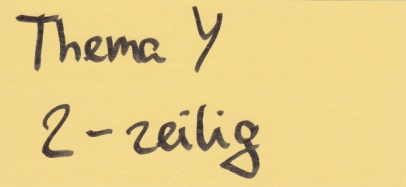 Thema Y
2-zeilig